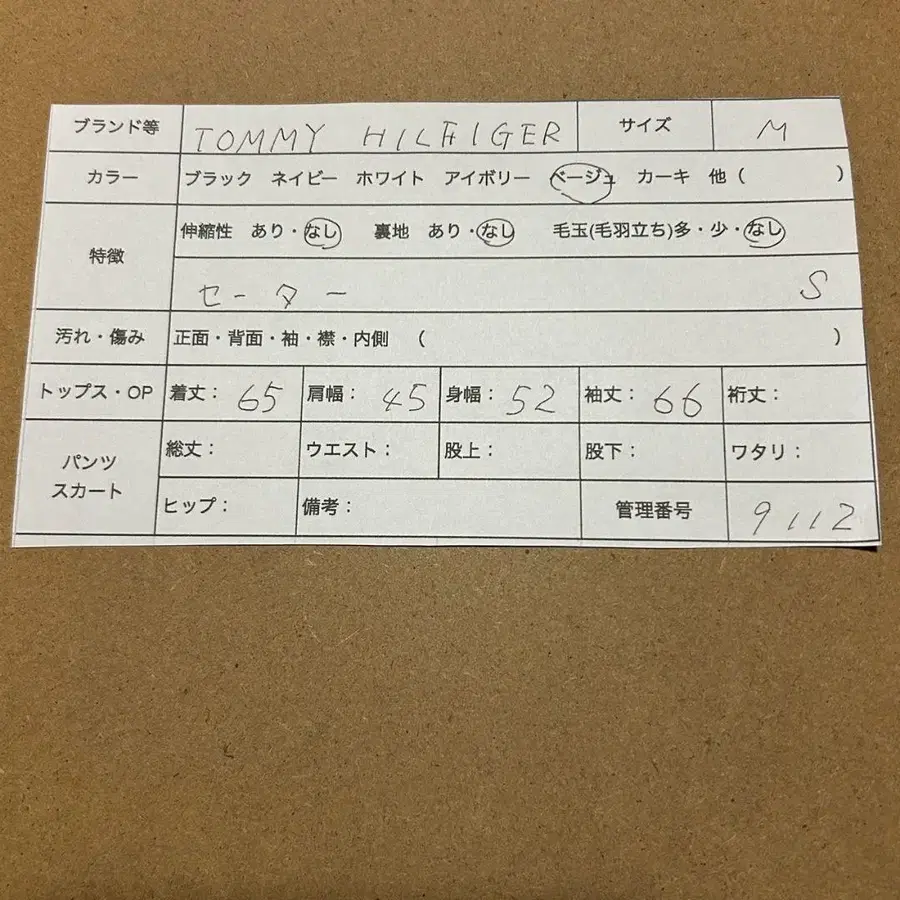 ブランド等 TOMMY HILFIGER サイズ M
カラー ブラック ネイビー ホワイト アイボリー ベージュ カーキ 他( )
特徴 伸縮性 あり・なし 裏地 あり・なし 毛玉(毛羽立ち)多・少・なし
セーター S
汚れ・傷み 正面・背面・袖・襟・内側 ( )
トップス・OP 着丈: 65 肩幅: 45 身幅: 52 袖丈: 66 裄丈:
パンツ スカート 総丈: ウエスト: 股上: 股下: ワタリ:
ヒップ: 備考: 管理番号 9112